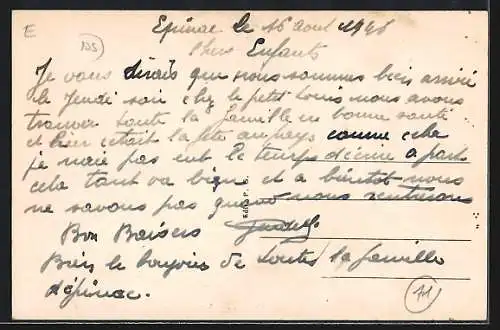 E
105
Epinac le 16 aout 1946
Chers Enfants
Je vous dirais que nous sommes bien arrivé
le Jeudi soir chez le petit Louis nous avons
trouver toute la famille en bonne santé
et hier cétait la fête au pays comme cela
je naie pas eut le temps décrire a part
cela tout va bien et a bientot nous
ne savons pas quand nous rentrerons
Bon Baisers
Bien le bonjoire de toutes la famille
d'épinac.
71